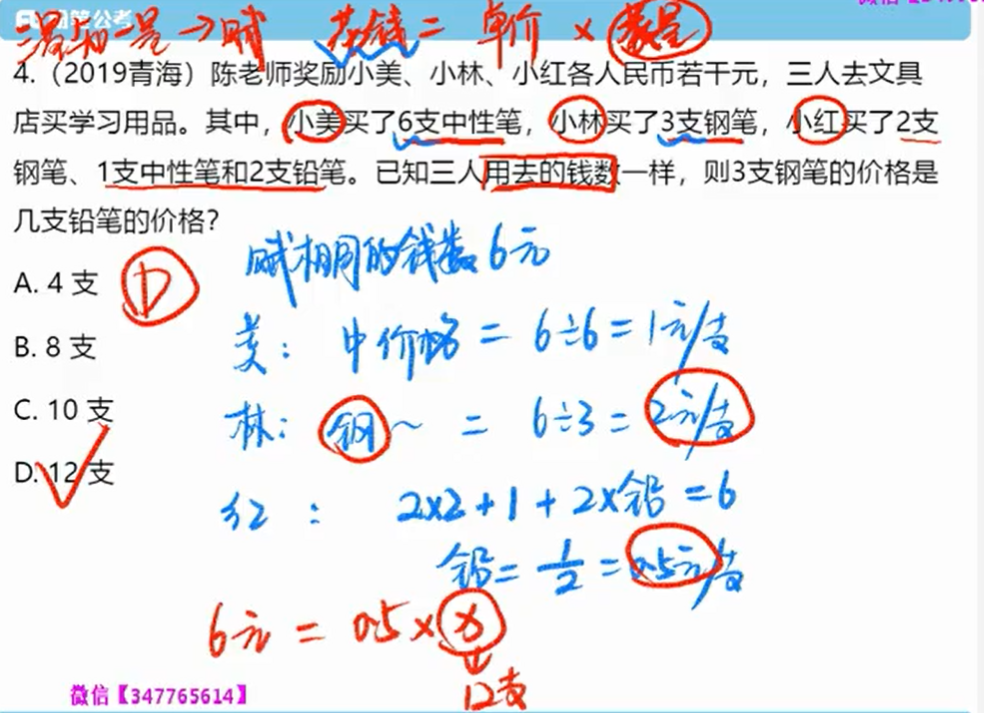 粉笔公考
三量知一量→赋 花钱=单价×数量
4.（2019青海）陈老师奖励小美、小林、小红各人民币若干元，三人去文具
店买学习用品。其中，小美买了6支中性笔，小林买了3支钢笔，小红买了2支
钢笔、1支中性笔和2支铅笔。已知三人用去的钱数一样，则3支钢笔的价格是
几支铅笔的价格？
赋相同的钱数6元
A. 4 支 D
美：中价格=6÷6=1元/支
B. 8 支
C. 10 支
林：钢~=6÷3=2元/支
D. 12 支
红：2×2+1+2×铅=6
铅=1/2=0.5元/支
6元=0.5×x
12支
微信【347765614】